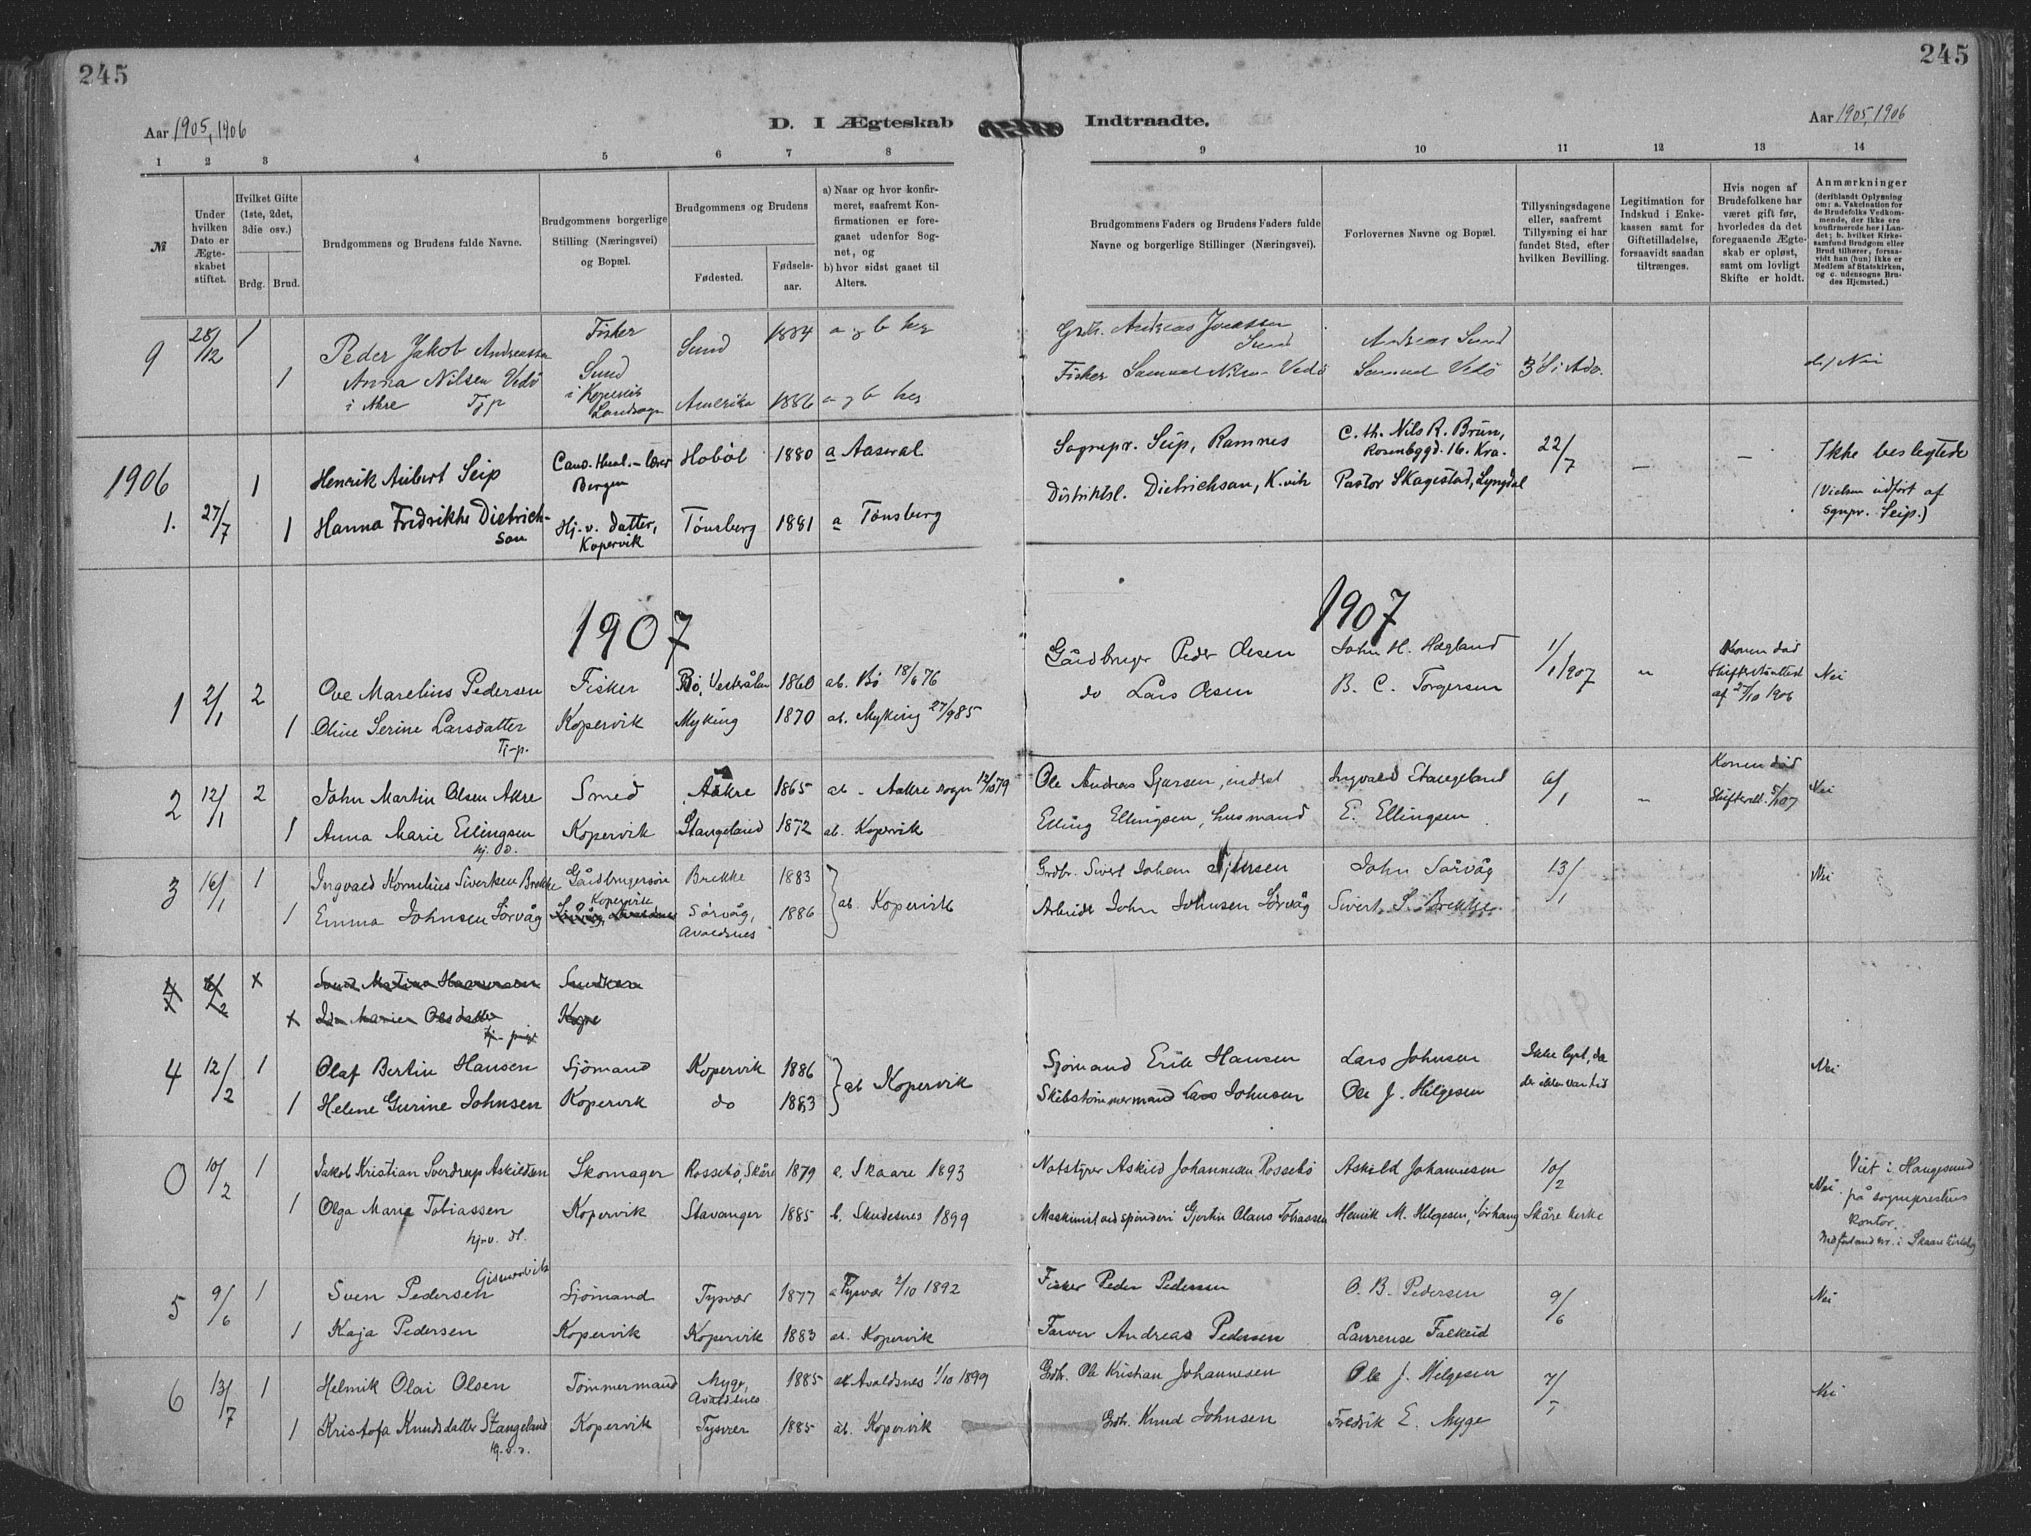 245
245
Aar 1905, 1906
D. I Ægteskab
Indtraadte.
Aar 1905, 1906
1 2 3 4 5 6 7 8
9 10 11 12 13 14
№
Under hvilken Dato er Ægteskabet stiftet.
Hvilket Gifte (1ste, 2det, 3die osv.)
Brdg. Brud.
Brudgommens og Brudens fulde Navne.
Brudgommens borgerlige Stilling (Næringsvei) og Bopæl.
Brudgommens og Brudens
Fødested.
Fødselsaar.
a) Naar og hvor konfirmeret, saafremt Konfirmationen er foregaaet udenfor Sognet, og
b) hvor sidst gaaet til Alters.
Brudgommens Faders og Brudens Faders fulde Navne og borgerlige Stillinger (Næringsvei).
Forlovernes Navne og Bopæl.
Tillysningsdagene eller, saafremt Tillysning ei har fundet Sted, efter hvilken Bevilling.
Legitimation for Indskud i Enkekassen samt for Giftetilladelse, forsaavidt saadan tiltrænges.
Hvis nogen af Brudefolkene har været gift før, hvorledes da det foregaaende Ægteskab er opløst, samt om lovligt Skifte er holdt.
Anmærkninger (deriblandt Oplysning om: a. Vakcination for de Brudefolks Vedkommende, der ikke ere konfirmerede her i Landet; b. hvilket Kirkesamfund Brudgom eller Brud tilhører, forsaavidt han (hun) ikke er Medlem af Statskirken, og c. udensogns Brudes Hjemsted.)
9 28/12 1 Peder Jakob Andreassen Fisker Sund 1884 a og b her Grdb. Andreas Sund Andreas Sund
1 Anna Nilsen Vedø Sund
i Akre Tjp i Kopervik Landsogn Amerika 1886 a og b her Fisker Samuel Nilsen Vedø Samuel Vedø 3 S i Adv. Nei
1906
1 Henrik Aubert Seip Cand. theol. - lærer Bergen Hobøl 1880 a Aaseral Sognepr. Seip, Ramnes C. th. Nils R. Brun, Rosenbggd. 16. Kra. 22/7 – – Ikke beslegtede
1. 27/7 1 Hanna Fredrikke Dietrichson Hj. v. datter, Kopervik Tønsberg 1881 a Tønsberg Distriktsl. Dietrichson, K.vik Pastor Skagestad, Lyngdal (Vielsen udført af Sgnpr. Seip.)
1907
1907
1 2/1 2 Ove Marelius Pedersen Fisker Bø, Vesterålen 1860 ab. Bø 18/6 76 Gårdbruger Peder Olsen John H. Hægland 1/1 1907 " Konen død Skifteattest af 27/10 1906 Nei
1 Oline Serine Larsdatter Tj-p. Kopervik Myking 1870 ab. Myking 27/9 85 do Lars Olsen B. C. Torgersen
2 12/1 2 John Martin Olsen Akre Smed Aakre 1865 ab - Aakre sogn 12/10 79 Ole Andreas Sjursen, inderst Ingvald Stangeland 6/1 " Konen død Nei
1 Anna Marie Ellingsen hj. d. Kopervik Stangeland 1872 ab. Kopervik Elling Ellingsen, husmand E. Ellingsen
3 16/1 1 Ingvald Kornelius Sivertsen Brekke Gårdbrugersøn Brekke 1883 ab. Kopervik Grdbr. Sivert Johan John Sørvåg 13/1 Nei
1 Emma Johnsen Sørvåg Kopervik Sørvåg, Avaldsnes 1886 Arbeider John Johnsen Sørvåg Sivert S. Brekke
4 12/2 1 Olaf Bertin Hansen Sjømand Kopervik 1886 ab Kopervik Sjømand Erik Hansen Lars Johnsen Ikke lyst, da der ikke var tid Nei
1 Helene Gurine Johnsen Kopervik do 1883 Skibstømmermand Lars Johnsen Ole J. Helgesen
0 10/2 1 Jakob Kristian Sverdrup Askildsen Skomager Rossebø, Skåre 1879 a. Skaare 1893 Notstyrer Askild Johannesen Rossebø Askild Johannesen 10/2 Nei Viet i Haugesund på sogneprestens kontor.
1 Olga Marie Tobiassen hj.v. dt. Kopervik Stavanger 1885 b. Skudesnes 1899 Maskinist ved spinderi Gjertin Olaus Tobiassen Henrik M. Helgesen, Sørhaug Skåre kirke Indført under nr. i Skaare kirkebog
5 9/6 1 Sven Pedersen Gismervik Sjømand Tysvær 1877 a Tysvær 2/10 1892 Fisker Peder Pedersen O. B. Pedersen 9/6 Nei
1 Kaja Pedersen Kopervik Kopervik 1883 ab. Kopervik Farver Andreas Pedersen Laurense Falkeid
6 13/7 1 Helmik Olai Olsen Tømmermand Myge, Avaldsnes 1885 ab Avaldsnes 1/10 1899 Grdbr. Ole Kristian Johannesen Ole J. Helgesen 7/7 Nei
1 Kristofa Knudsdatter Stangeland hj. v. d. Kopervik Tysvær 1885 ab. Kopervik Grdbr. Knud Johnsen Fredrik E. Myge